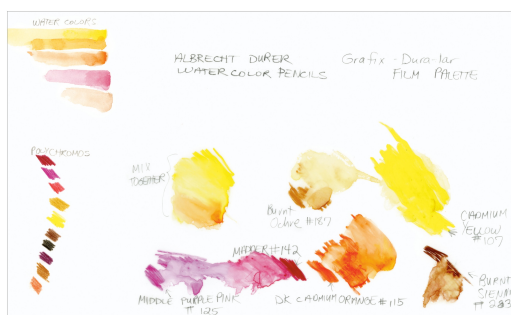 WATER COLORS
ALBRECHT DURER
WATERCOLOR PENCILS
Grafix - Dura-lar
FILM PALETTE
POLYCHROMOS
MIX
TOGETHER
Burnt
Ochre #187
CADMIUM
YELLOW
#107
MADDER #142
MIDDLE PURPLE PINK
#125
DK CADMIUM ORANGE #115
BURNT
SIENNA
#283